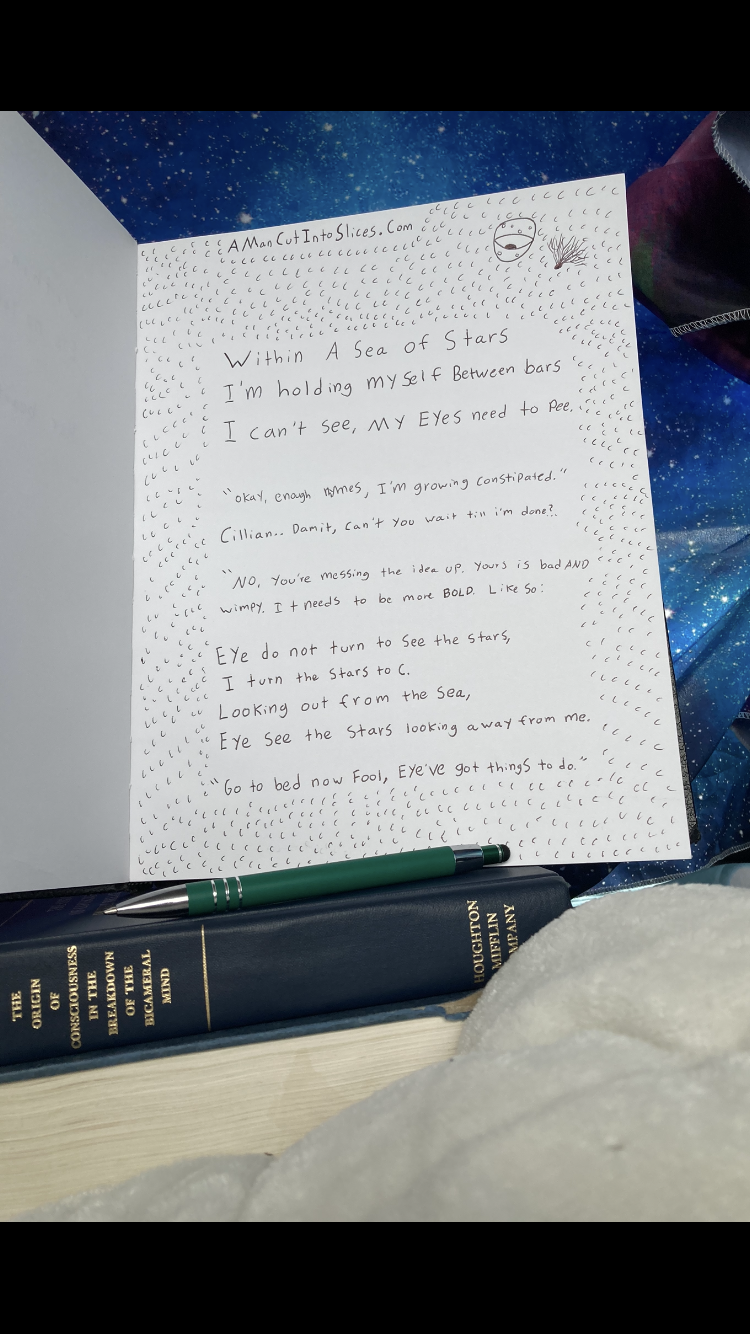 AManCutIntoSlices.Com
Within A Sea of Stars
I'm holding myself Between bars
I can't see, MY EYes need to Pee.
"okay, enough rymes, I'm growing constipated."
Cillian.. Damit, can't You wait till i'm done?
"NO, You're messing the idea up. Yours is bad AND
wimpy. It needs to be more BOLD. Like So:
EYe do not turn to see the stars,
I turn the Stars to C.
Looking out from the Sea,
EYe See the Stars looking away from me.
"Go to bed now Fool, EYe've got things to do."
THE
ORIGIN
OF
CONSCIOUSNESS
IN THE
BREAKDOWN
OF THE
BICAMERAL
MIND
HOUGHTON
MIFFLIN
MPANY